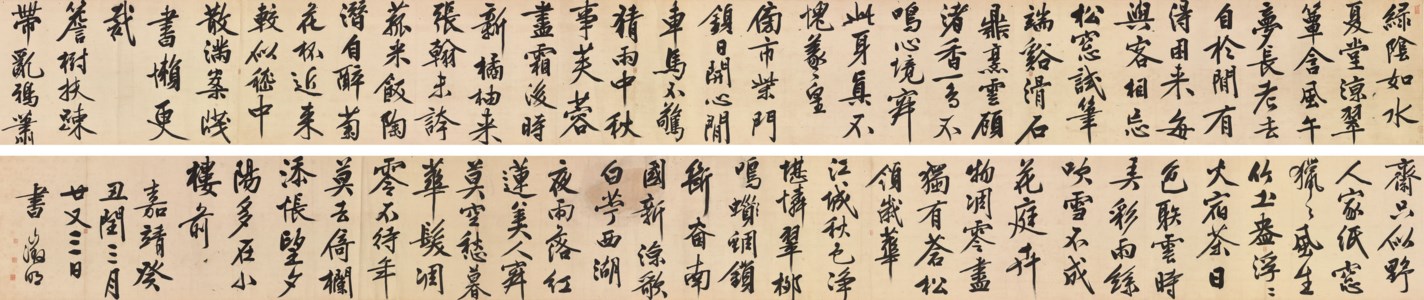 綠陰如水
夏堂涼翠
簟含風午
夢長老去
自於閒有
得困来每
與客相忘
松窓試筆
端谿滑石
鼎烹雲顧
渚香一鳥不
鳴心境寂
此身真不
愧羲皇
傍市柴門
鎖日開心閒
車馬不驚
猜雨中秋
事芙蓉
盡霜後時
新橘柚来
張翰未誇
菰米飯陶
潛自醉菊
花杯近来
較似嵇中
散滿案牋
書懶更
裁
簷樹扶疎
帶亂鴉蕭
齋只似野
人家紙窓
獵々風生
竹土盎浮々
火宿茶日
色聯雲時
弄彩雨絲
吹雪不成
花庭卉
物凋零盡
獨有蒼松
領歲華
江城秋色淨
堪憐翠柳
鳴蜩鎖
斷南
國新涼歌
白苧西湖
夜雨落紅
蓮美人寂
莫空愁暮
華髮凋
零不待年
莫去倚欄
添悵望夕
陽多在小
樓前
嘉靖癸
丑閏三月
廿又三日
書 徵明